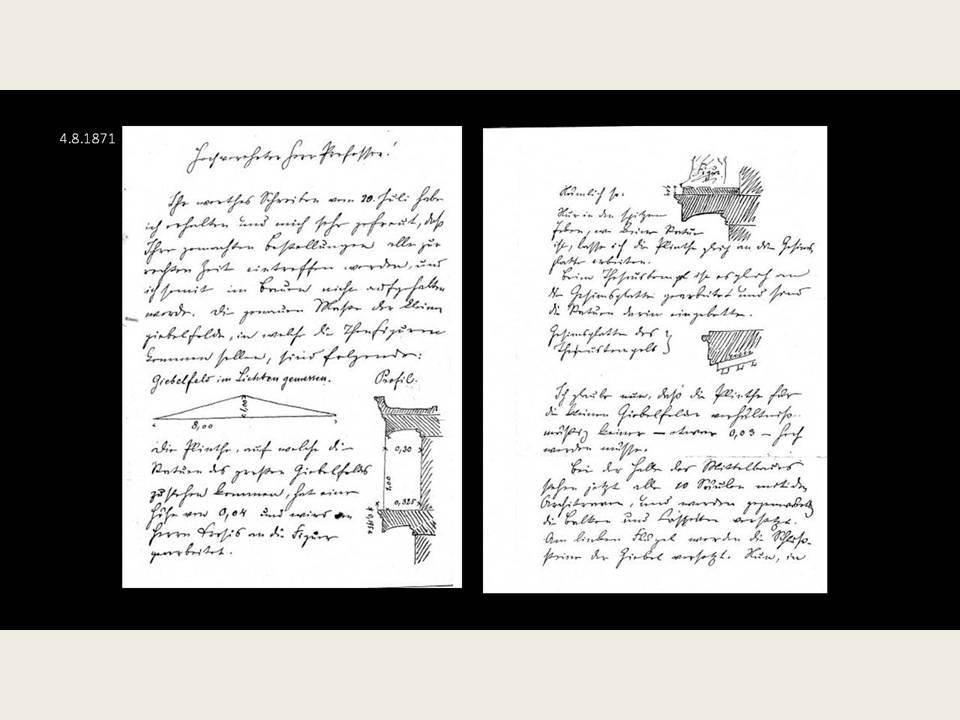 4.8.1871
Hochverehrter Herr Professor!
Ihr werthes Schreiben vom 20. Juli habe
ich erhalten und mich sehr gefreut, daß
Ihre gemachten Bestellungen alle zur
rechten Zeit eintreffen werden, und
ich somit im Bauen nicht aufgehalten
werde. Die genauen Maße der kleinen
Giebelfelder, in welche die Thonfiguren
kommen sollen, sind folgende:
Giebelfeld im Lichten gemessen. Profil.
1,00
8,00
Die Plinthe, auf welche die
Statuen des großen Giebelfelds
zu stehen kommen, hat eine
Höhe von 0,04 und wird von
Herrn an die Figur
gearbeitet.
0,30
1,00
0,325
Figur
Nämlich so:
Nur in den spitzen
Ecken, wo keine Statue
ist, lasse ich die Plinthe gleich an die Gesims
platte arbeiten.
Beim Theseustempel ist es gleich an
die Gesimsplatte gearbeitet und sind
die Statuen darin eingebettet.
Gesimsplatten des
Theseustempels
Ich glaube nun, daß die Plinthe für
die kleinen Giebelfelder verhältniß-
mäßig kleiner — etwa 0,03 — hoch
werden müsse.
Bei der Halle des Mittelbaues
stehen jetzt alle 10 Säulen mit den
Architraven, und werden gegenwärtig
die Balken und versetzt.
Am linken Flügel werden die Schluß-
steine der Giebel versetzt. Nun, in